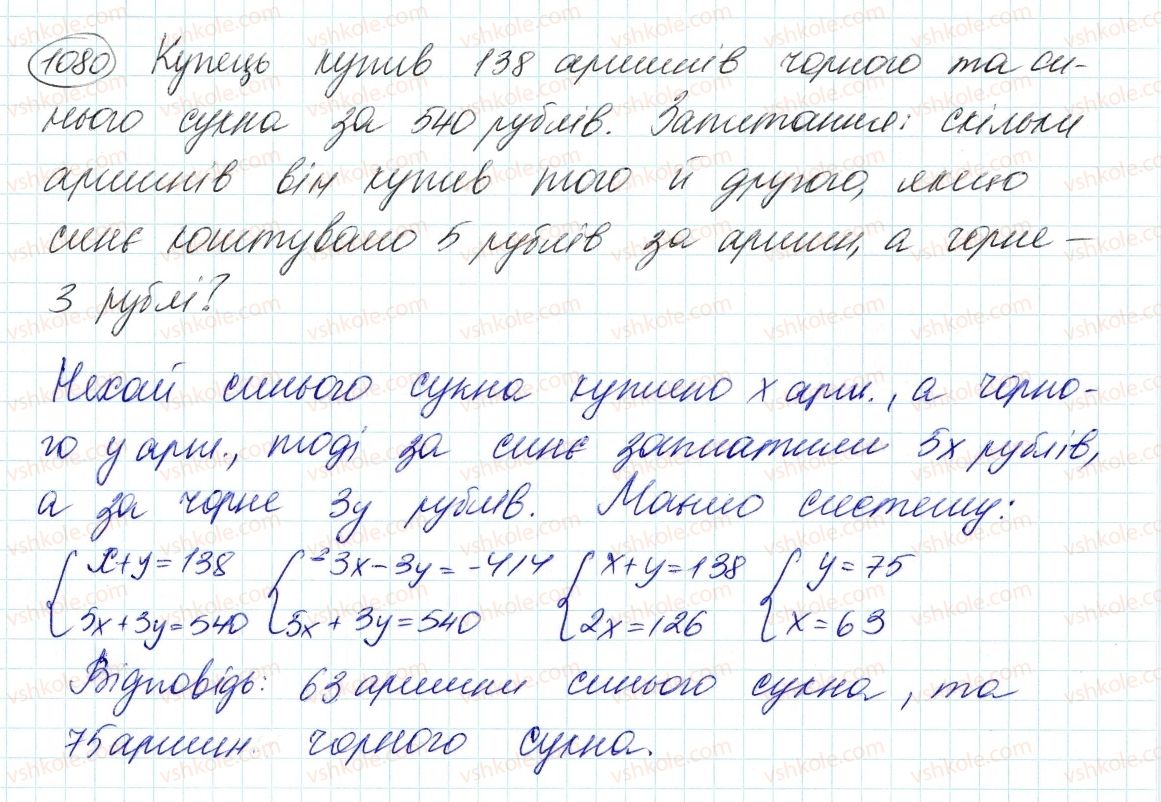 1080 Купець купив 138 аршинів чорного та си-
нього сукна за 540 рублів. Запитання: скільки
аршинів він купив того й другого, якщо
синє коштувало 5 рублів за аршин, а чорне –
3 рублі?
Нехай синього сукна куплено x арш., а чорно-
го y арш., тоді за синє заплатили 5x рублів,
а за чорне 3y рублів. Маємо систему:
x+y=138 -3x-3y=-414 x+y=138 y=75
5x+3y=540 5x+3y=540 2x=126 x=63
Відповідь: 63 аршини синього сукна, та
75 аршин. чорного сукна.
vshkole.com